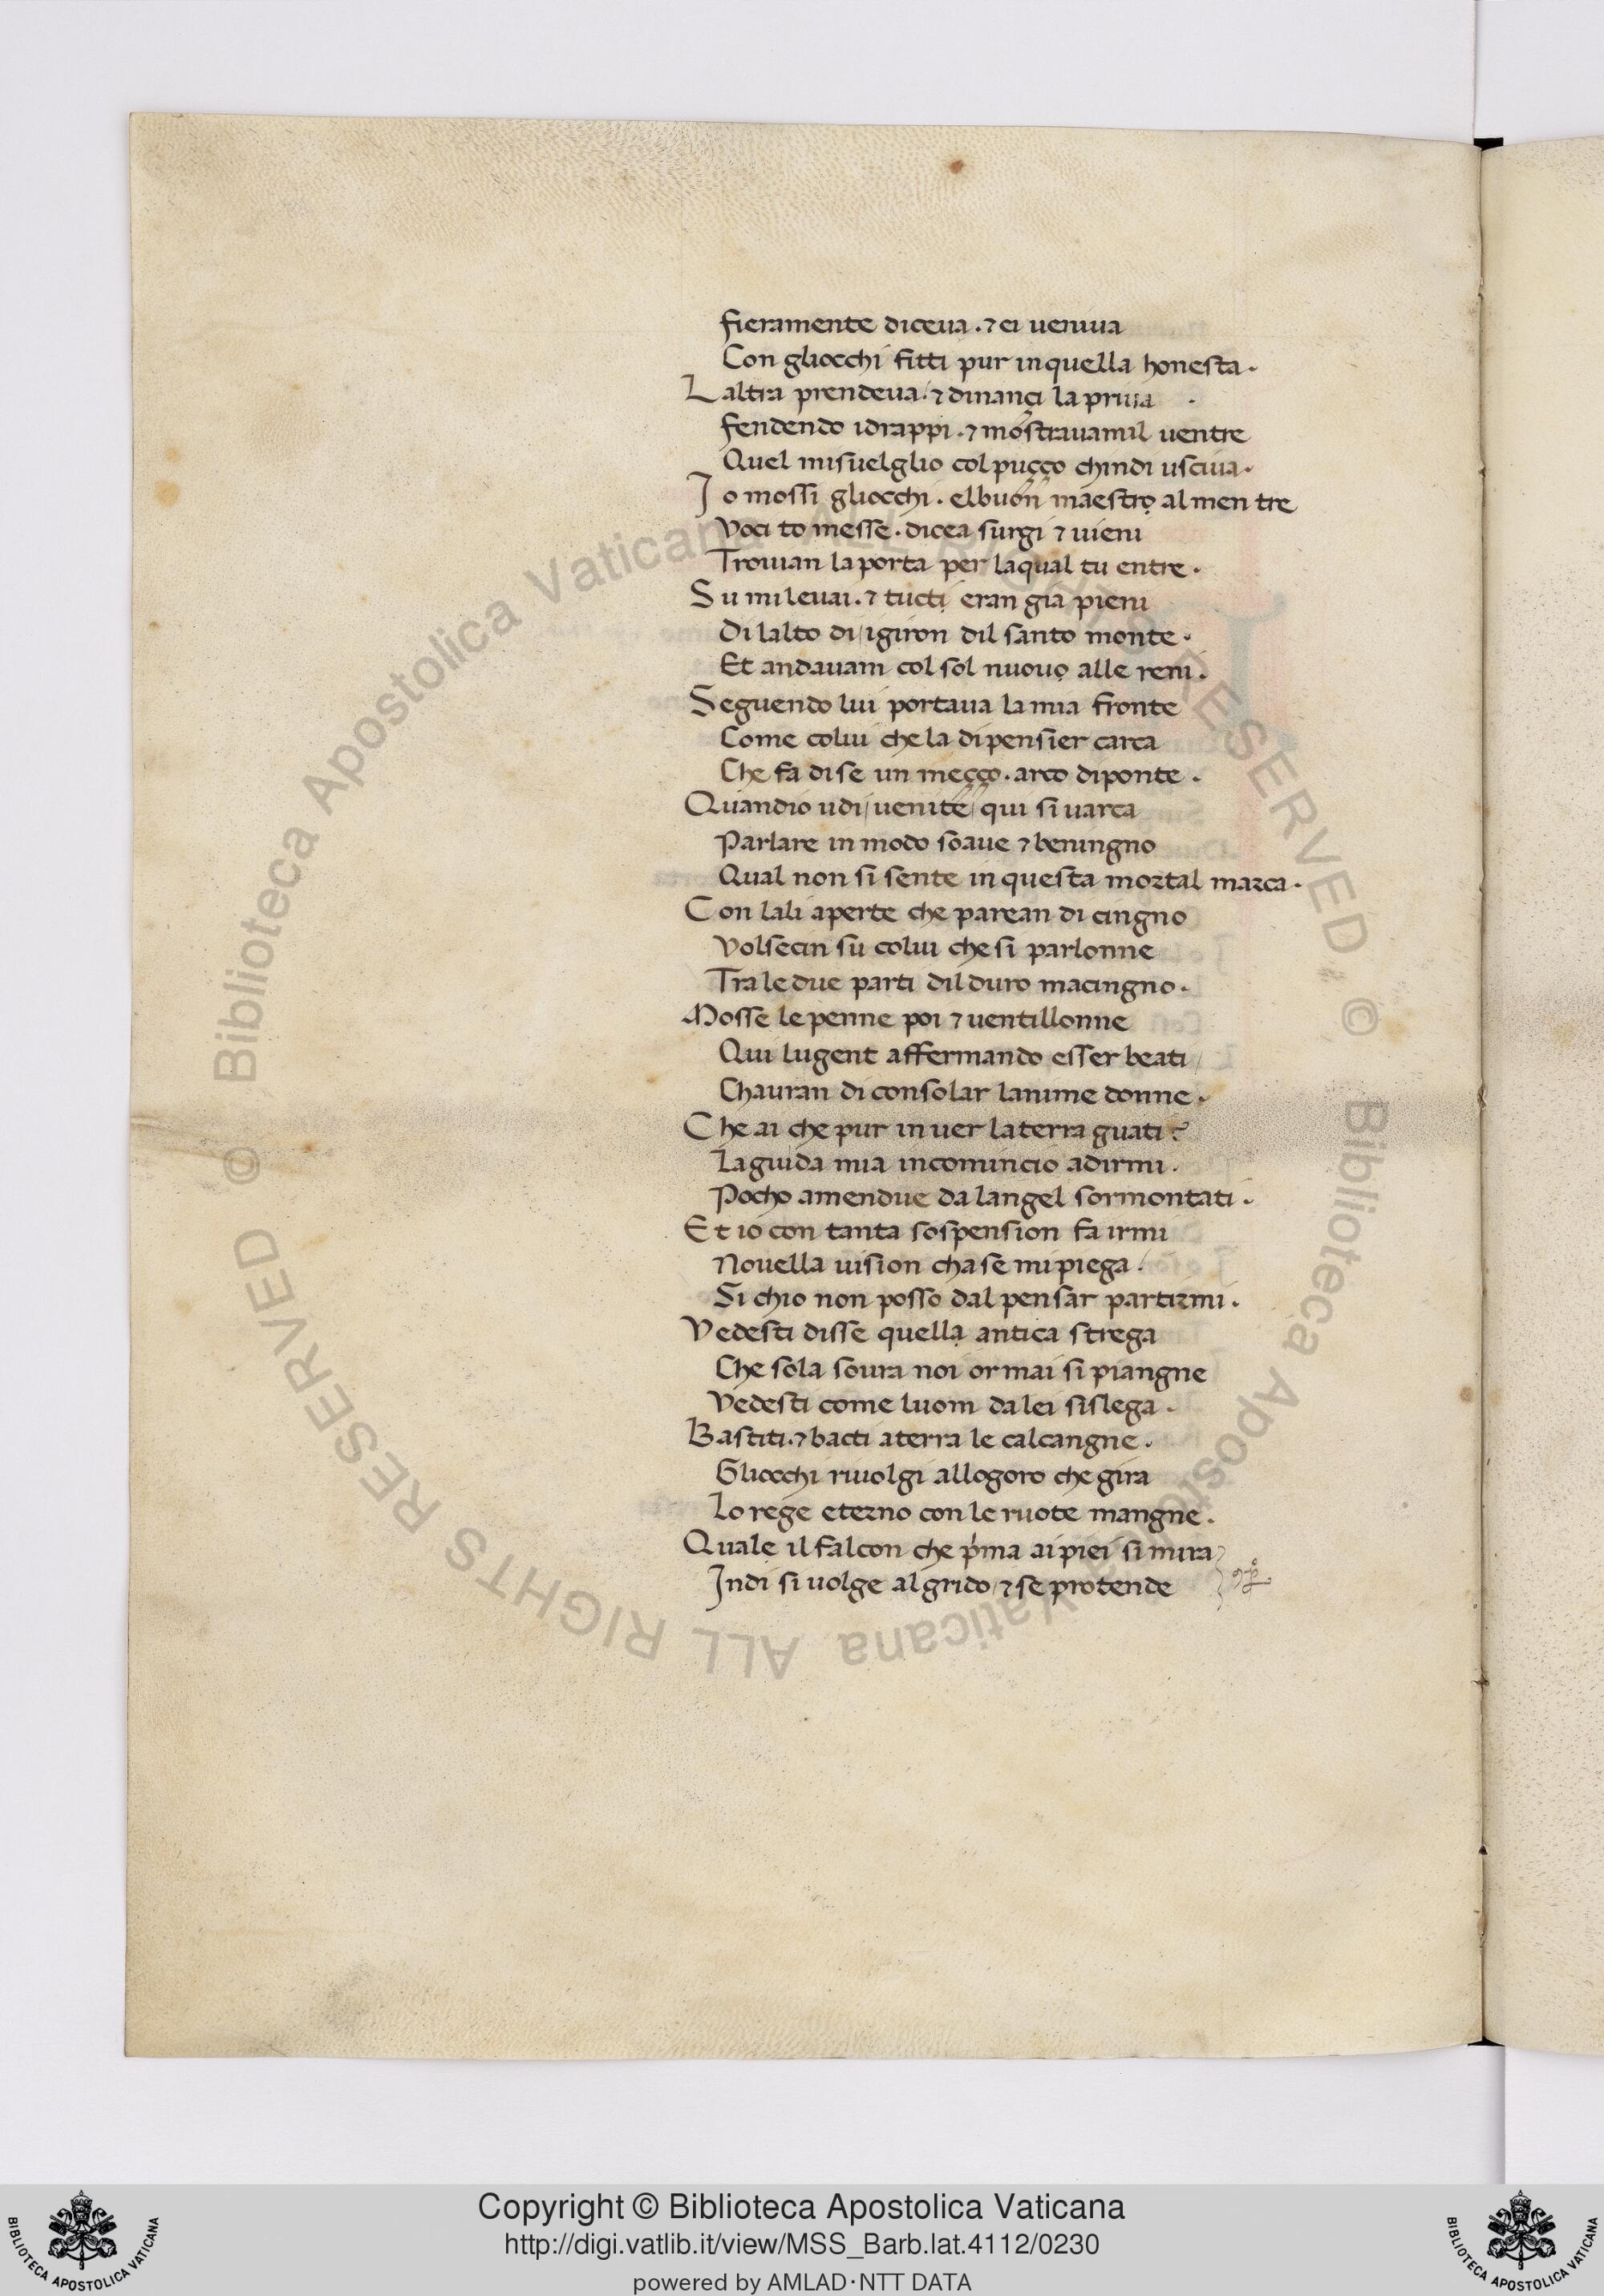 fieramente diceua . ⁊ ei ueniua
Con gliocchi fitti pur inquella honesta .
Laltra prendeua / ⁊ dinançi la priua .
fendendo idrappi . ⁊ mostrauamil uentre
Quel misuelglio col puçço chindi usciua .
Jo mossi gliocchi . elbuon maestrọ al men tre
Voci to messe . dicea surgi ⁊ uieni
Trouian la porta per laqual tu entre .
Su mi leuai . ⁊ tuctị eran gia pieni
Di lalto di / igiron dil santo monte .
Et andauam col sol nuouọ alle reni .
Seguendo lui portaua la mia fronte
Come colui che la dipensier carca
Che fa dise un meçço . arco diponte .
Quandio udi / uenite // qui si uarca
Parlare in modo soaue ⁊ beningno
Qual non si sente in questa mortal marca .
Con lali aperte che parean di cingno
Volsecin su colui che si parlonne
Tra le due parti dil duro macingno .
Mosse le penne poi ⁊ uentillonne
Qui lugent affermando esser beati /
Chauran di consolar lanime donne .
Che ai che pur in uer la terra guati ?
La guida mia incomincio adirmi .
Pocho amendue da langel sormontati .
Et io con tanta sospension fa irmi
Nouella uision chase mi piega /
Si chio non posso dal pensar partirmi .
Vedesti disse quellạ antica strega
Che sola soura noi ormai si piangne
Vedesti come luom da lei sislega .
Bastiti . ⁊ bacti aterra le calcangne .
Gliocchi riuolgi allogoro che gira
Lo rege eterno con le ruote mangne .
Quale il falcon che p'ma ai piei si mira
Indi si uolge al grido / ⁊ se protende
© Biblioteca Apostolica Vaticana ALL RIGHTS RESERVED © Biblioteca Apostolica Vaticana ALL RIGHTS RESERVED
Copyright © Biblioteca Apostolica Vaticana
http://digi.vatlib.it/view/MSS_Barb.lat.4112/0230
powered by AMLAD·NTT DATA
BIBLIOTECA APOSTOLICA VATICANA
BIBLIOTECA APOSTOLICA VATICANA